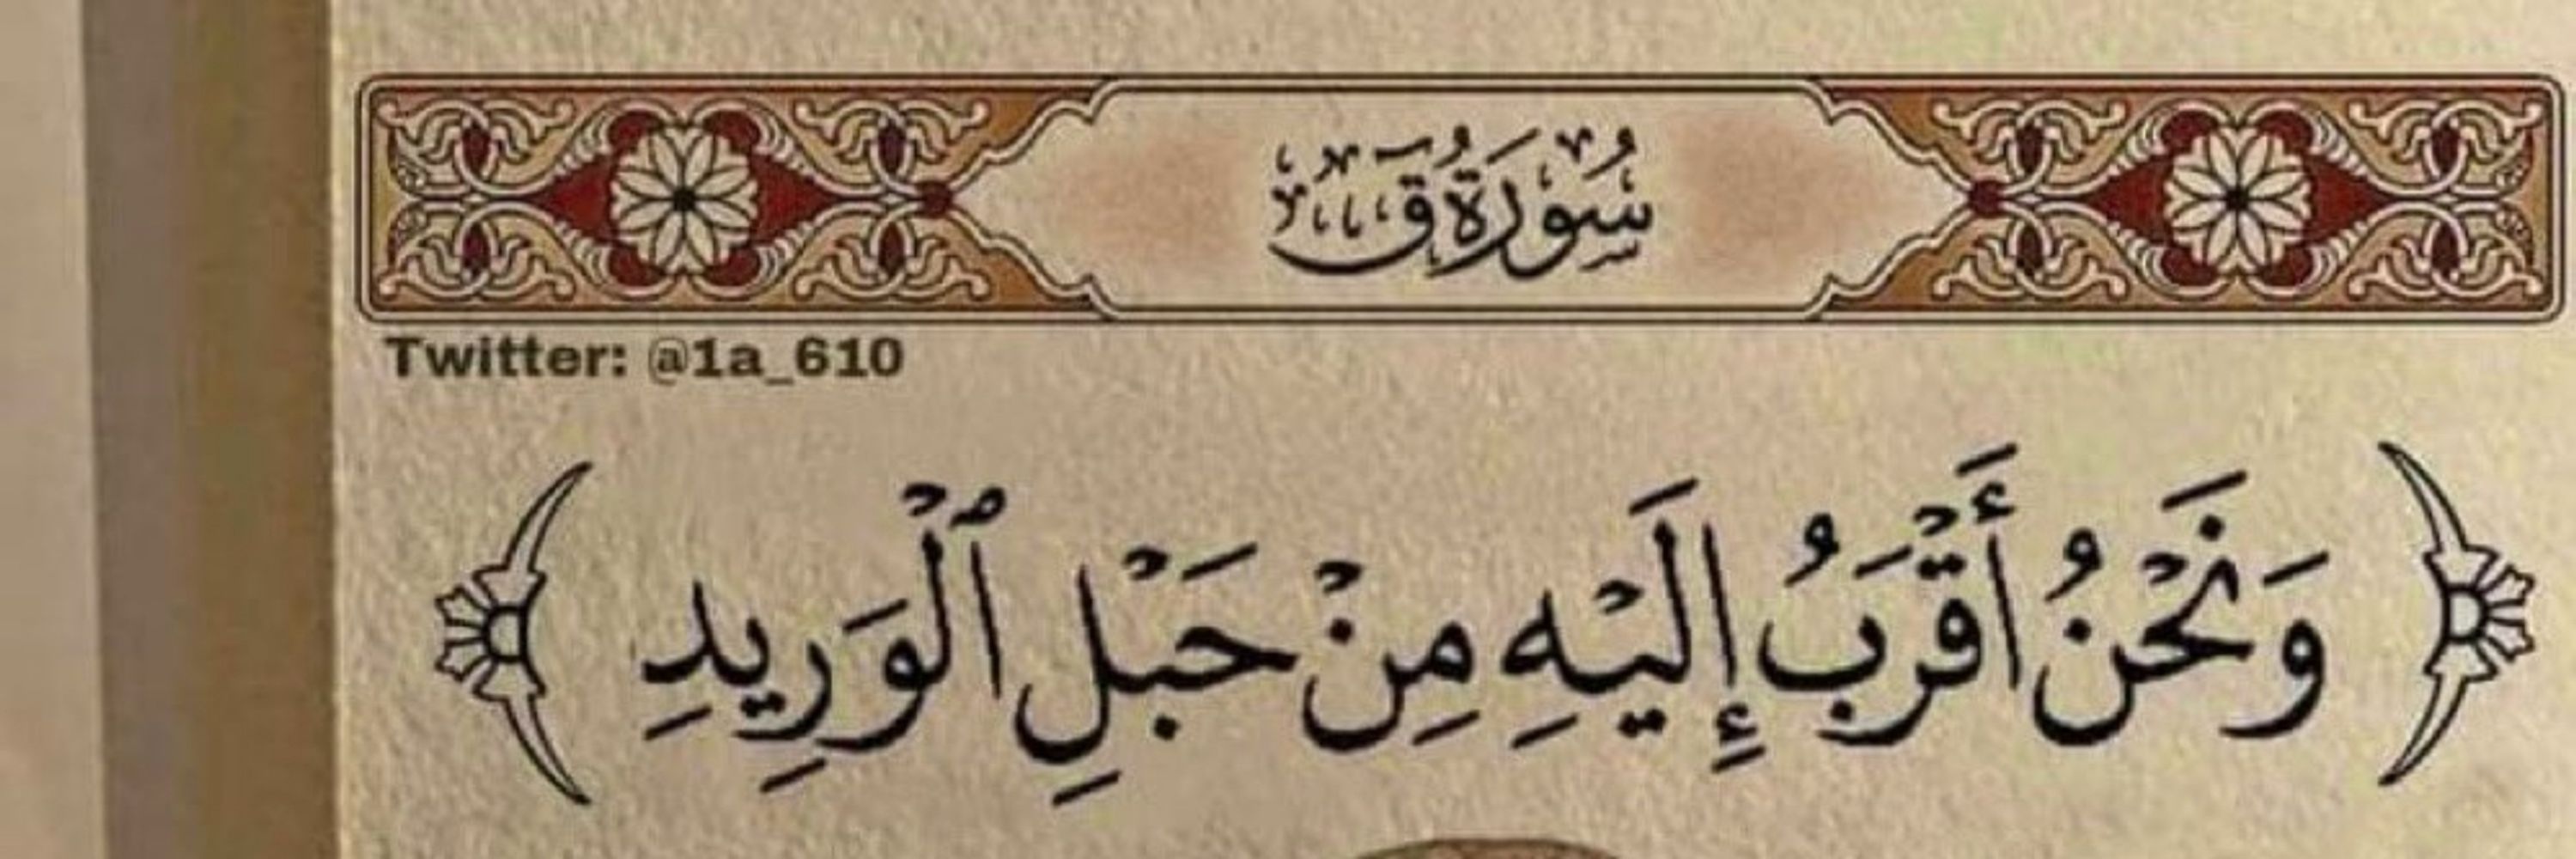 سُورَةُ قَ
Twitter: @1a_610
﴿ وَنَحْنُ أَقْرَبُ إِلَيْهِ مِنْ حَبْلِ ٱلْوَرِيدِ ﴾